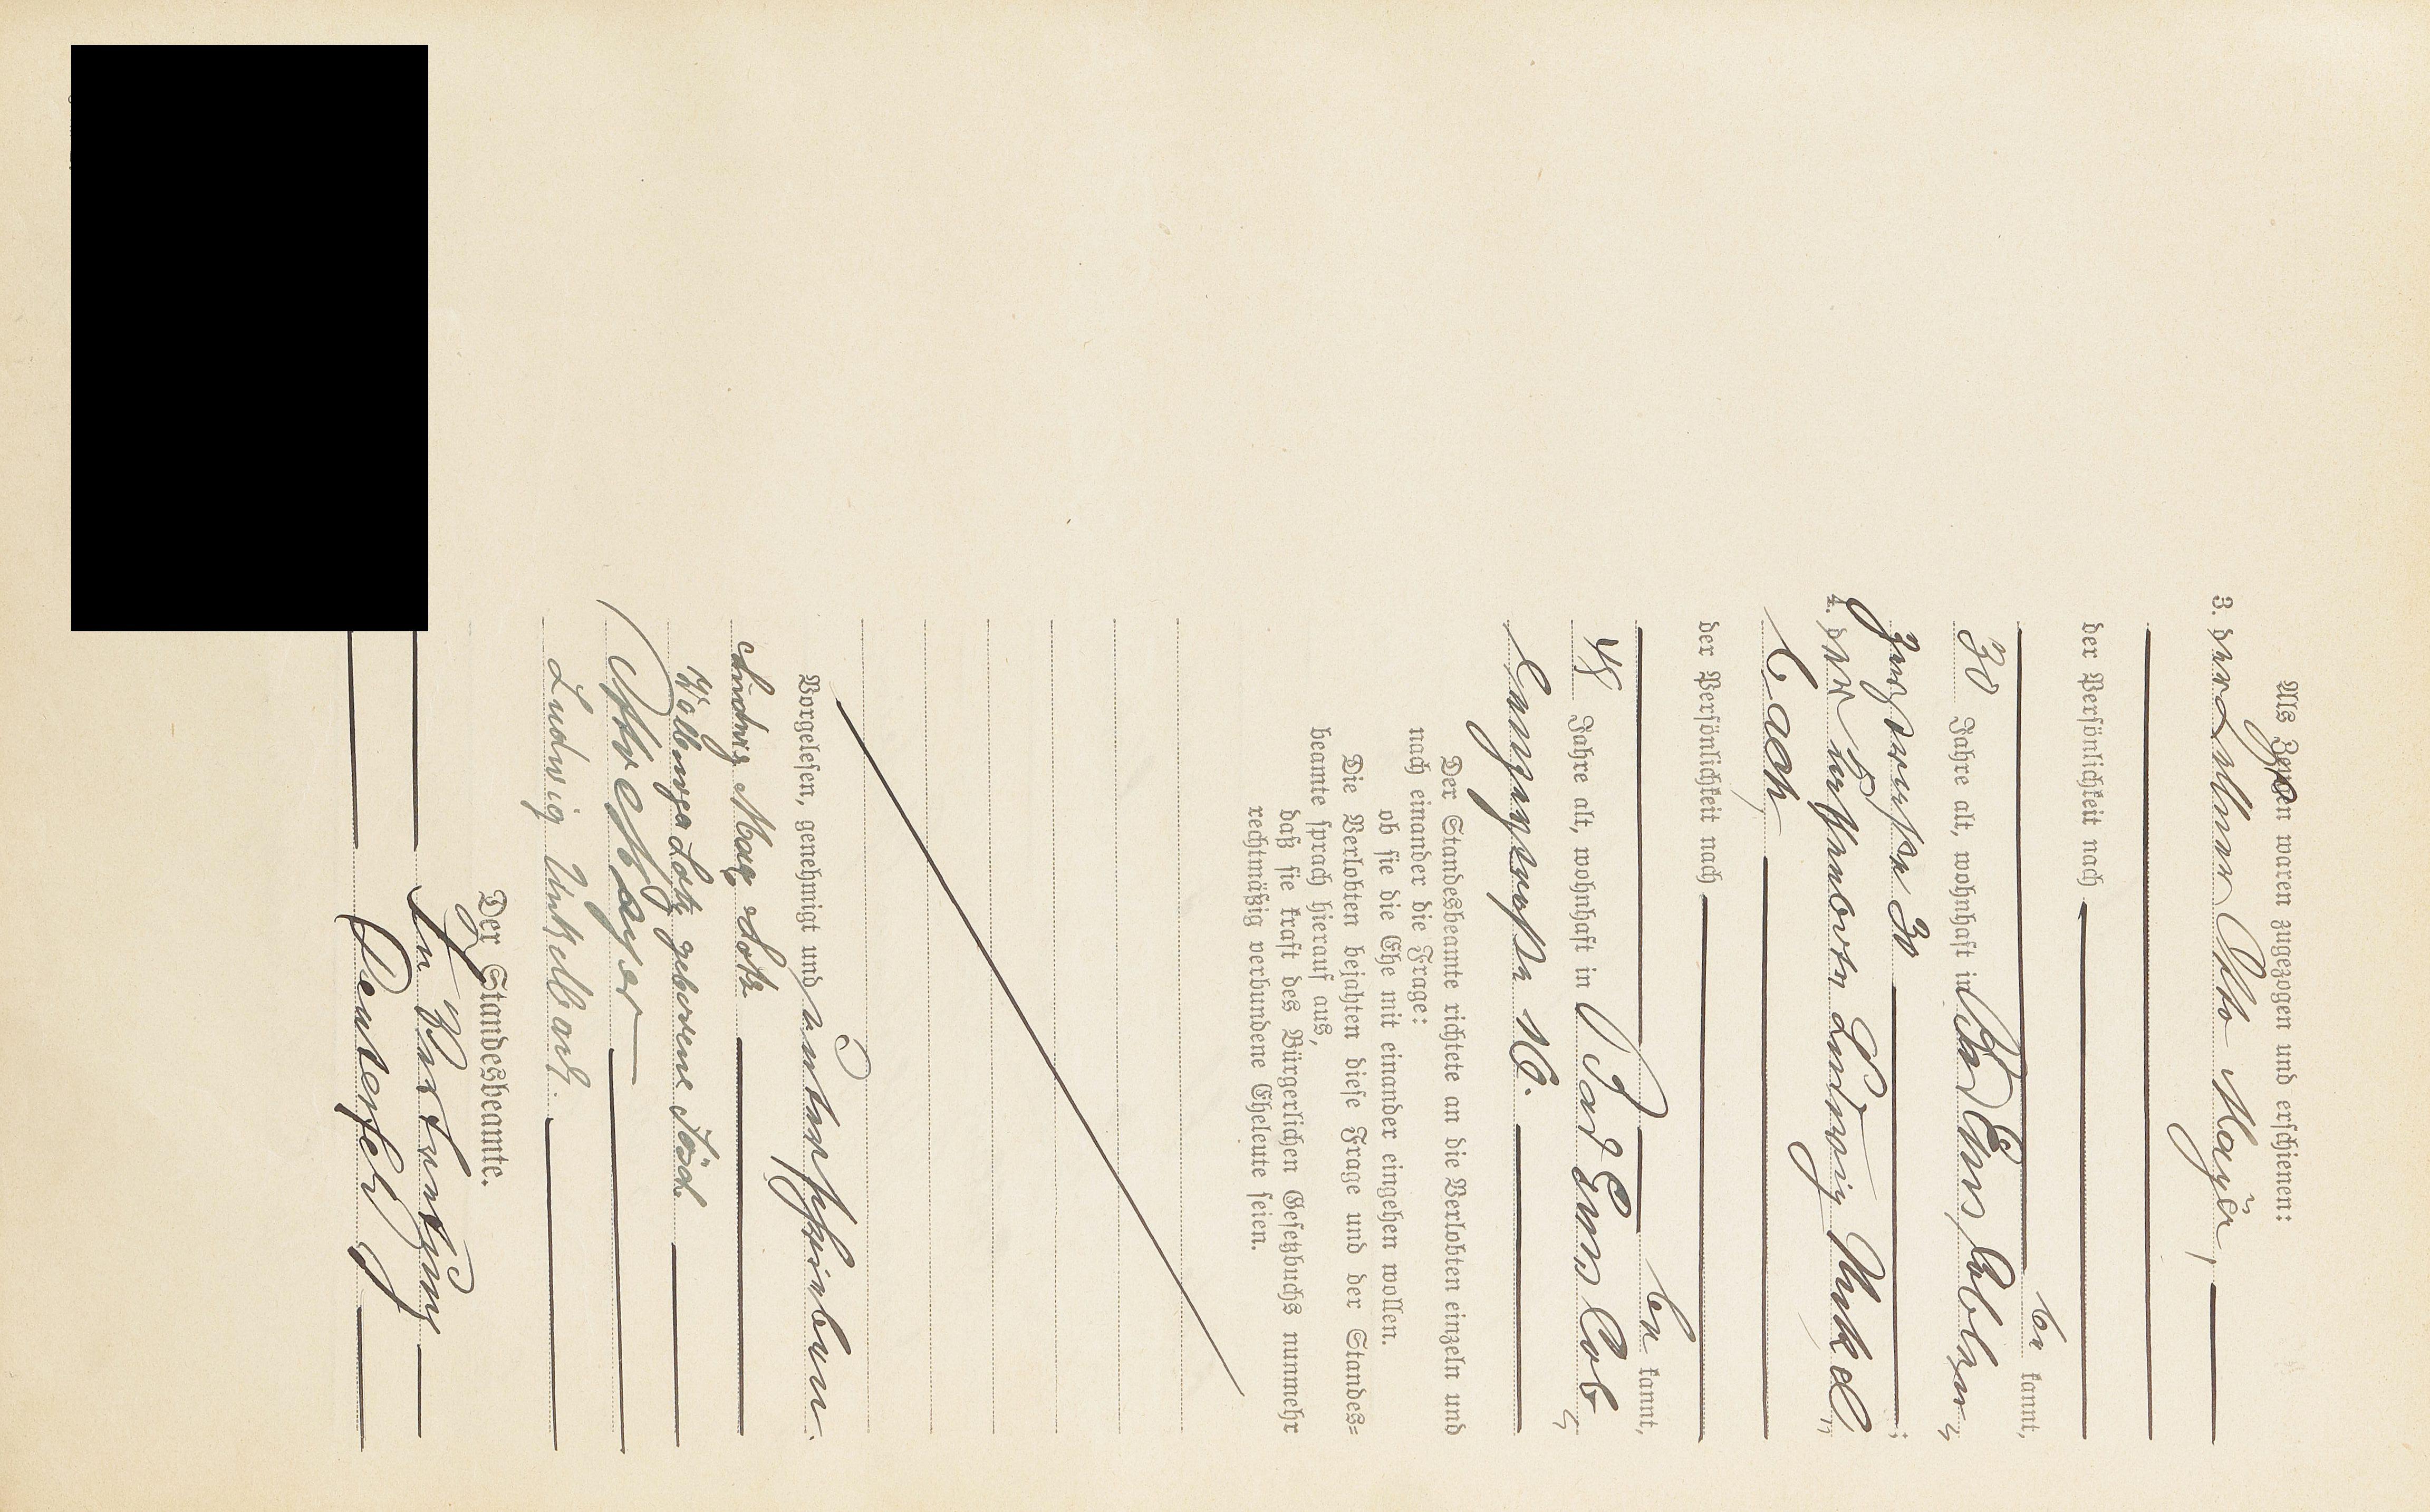 Als Zeugen waren zugezogen und erschienen:
3. der Otto Mayer,
der Persönlichkeit nach
be kannt,
30 Jahre alt, wohnhaft in Bad Ems, Coblenz-
erstraße 30;
4. der Ludwig Unkel-
bach,
der Persönlichkeit nach
be kannt,
48 Jahre alt, wohnhaft in Bad Ems, Cob-
lenzerstraße 16.
Der Standesbeamte richtete an die Verlobten einzeln und
nach einander die Frage:
ob sie die Ehe mit einander eingehen wollen.
Die Verlobten bejahten diese Frage und der Standes-
beamte sprach hierauf aus,
daß sie kraft des Bürgerlichen Gesetzbuchs nunmehr
rechtmäßig verbundene Eheleute seien.
Vorgelesen, genehmigt und unterschrieben.
Ludwig Lotz
Lotz geborene
Otto Mayer
Ludwig Unkelbach.
Der Standesbeamte.
In Vertretung